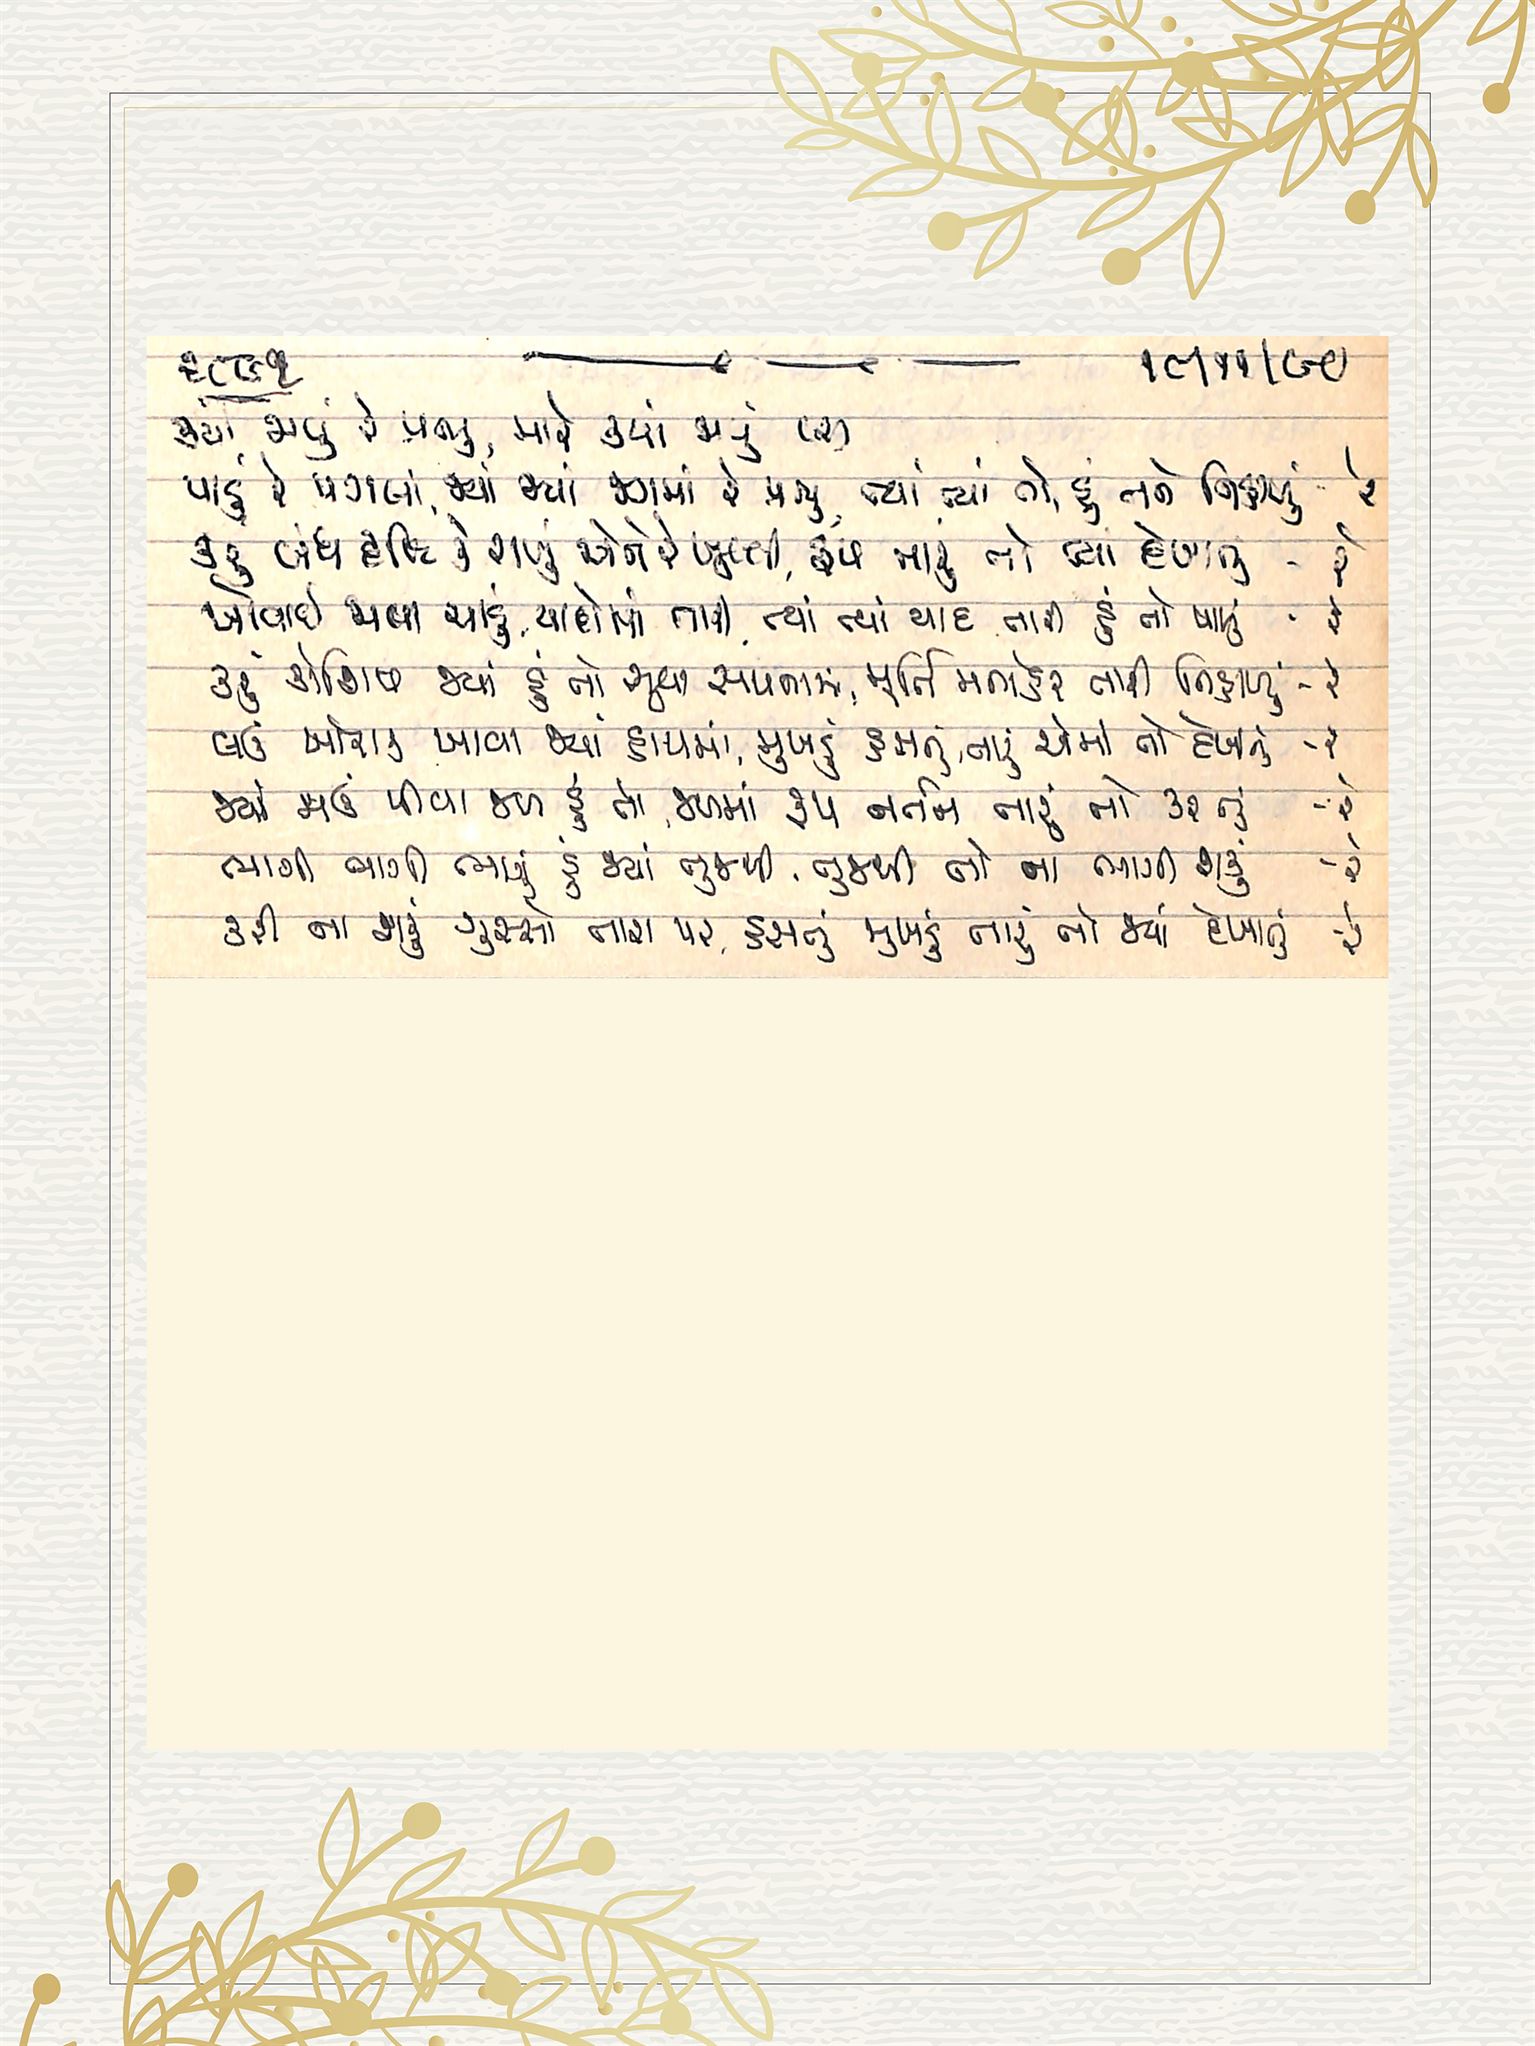 ૨૮૭૧ ૧૯/૧૧/૯૦
ક્યાં જાવું રે પ્રભુ, મારે ક્યાં જાવું (૨)
પાડું રે પગલાં, જ્યાં જ્યાં જગમાં રે પ્રભુ, ત્યાં ત્યાં તો, હું તને નિહાળું - રે
કરુ બંધ દૃષ્ટિ કે રાખું એને રે ખુલ્લી, રૂપ તારું તો ત્યાં દેખાતું - રે
ખોવાઈ જાવા ચાહું, યાદોમાં તારી, ત્યાં ત્યાં યાદ તારી હું તો પામું - રે
કરું કોશિષ જ્યાં હું તો સૂવા સપનામાં, મૂર્તિ મનોહર તારી નિહાળું - રે
લઉં ખોરાક ખાવા જ્યાં હાથમાં, મુખડું હસતું, તારું એમાં તો દેખાતું - રે
જ્યાં જાઉં પીવા જળ હું તો, જળમાં રૂપ નર્તન તારું તો કરતું - રે
ભાગી ભાગી ભાગું હું જ્યાં તુજથી, તુજથી તો ના ભાગી શકું - રે
કરી ના શકું ગુસ્સો તારા પર, હસતું મુખડું તારું તો જ્યાં દેખાતું - રે